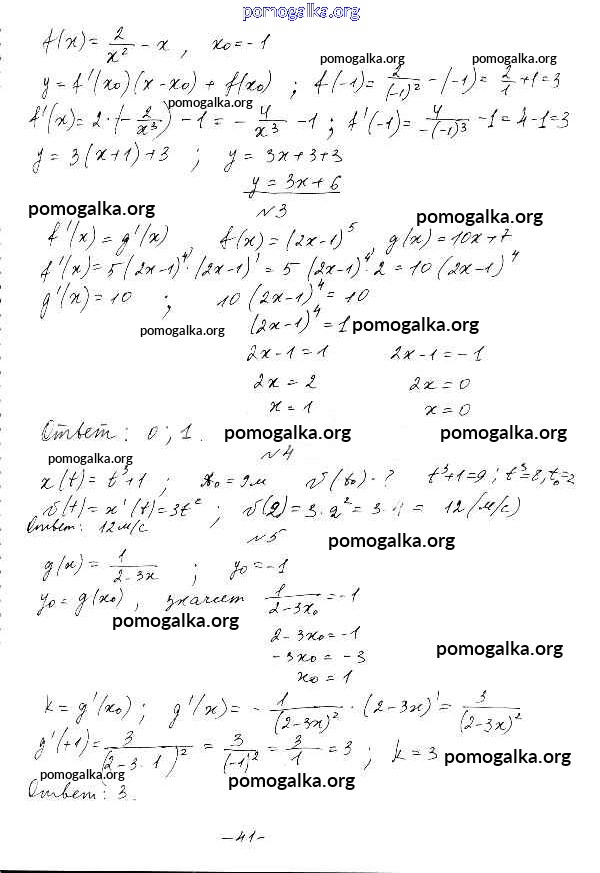 pomogalka.org
f(x) = 2/x² - x, x₀ = -1
pomogalka.org pomogalka.org
y = f'(x₀)(x - x₀) + f(x₀) ; f(-1) = 2/(-1)² - (-1) = 2/1 + 1 = 3
pomogalka.org
f'(x) = 2·(-2/x³) - 1 = -4/x³ - 1 ; f'(-1) = 4/-(-1)³ - 1 = 4 - 1 = 3
y = 3(x+1) + 3 ; y = 3x + 3 + 3
y = 3x + 6
pomogalka.org №3 pomogalka.org
f'(x) = g'(x) f(x) = (2x-1)⁵, g(x) = 10x + 7
f'(x) = 5(2x-1)⁴·(2x-1)' = 5(2x-1)⁴·2 = 10(2x-1)⁴
g'(x) = 10 ; 10(2x-1)⁴ = 10
pomogalka.org (2x-1)⁴ = 1 pomogalka.org
2x-1 = 1 2x-1 = -1
2x = 2 2x = 0
x = 1 x = 0
Ответ: 0; 1. pomogalka.org pomogalka.org
pomogalka.org №4
x(t) = t³+1 ; x₀ = 9м v(t₀)-? t³+1=9 ; t³=8, t₀=2
v(t) = x'(t) = 3t² ; v(2) = 3·2² = 3·4 = 12 (м/с)
Ответ: 12 м/с №5
pomogalka.org
g(x) = 1/(2-3x) ; y₀ = -1
y₀ = g(x₀), значит 1/(2-3x₀) = -1
pomogalka.org
2-3x₀ = -1
pomogalka.org
-3x₀ = -3
x₀ = 1
k = g'(x₀) ; g'(x) = -1/(2-3x)² · (2-3x)' = 3/(2-3x)²
g'(+1) = 3/(2-3·1)² = 3/(-1)² = 3/1 = 3 ; k = 3 pomogalka.org
pomogalka.org pomogalka.org
Ответ: 3.
-41-